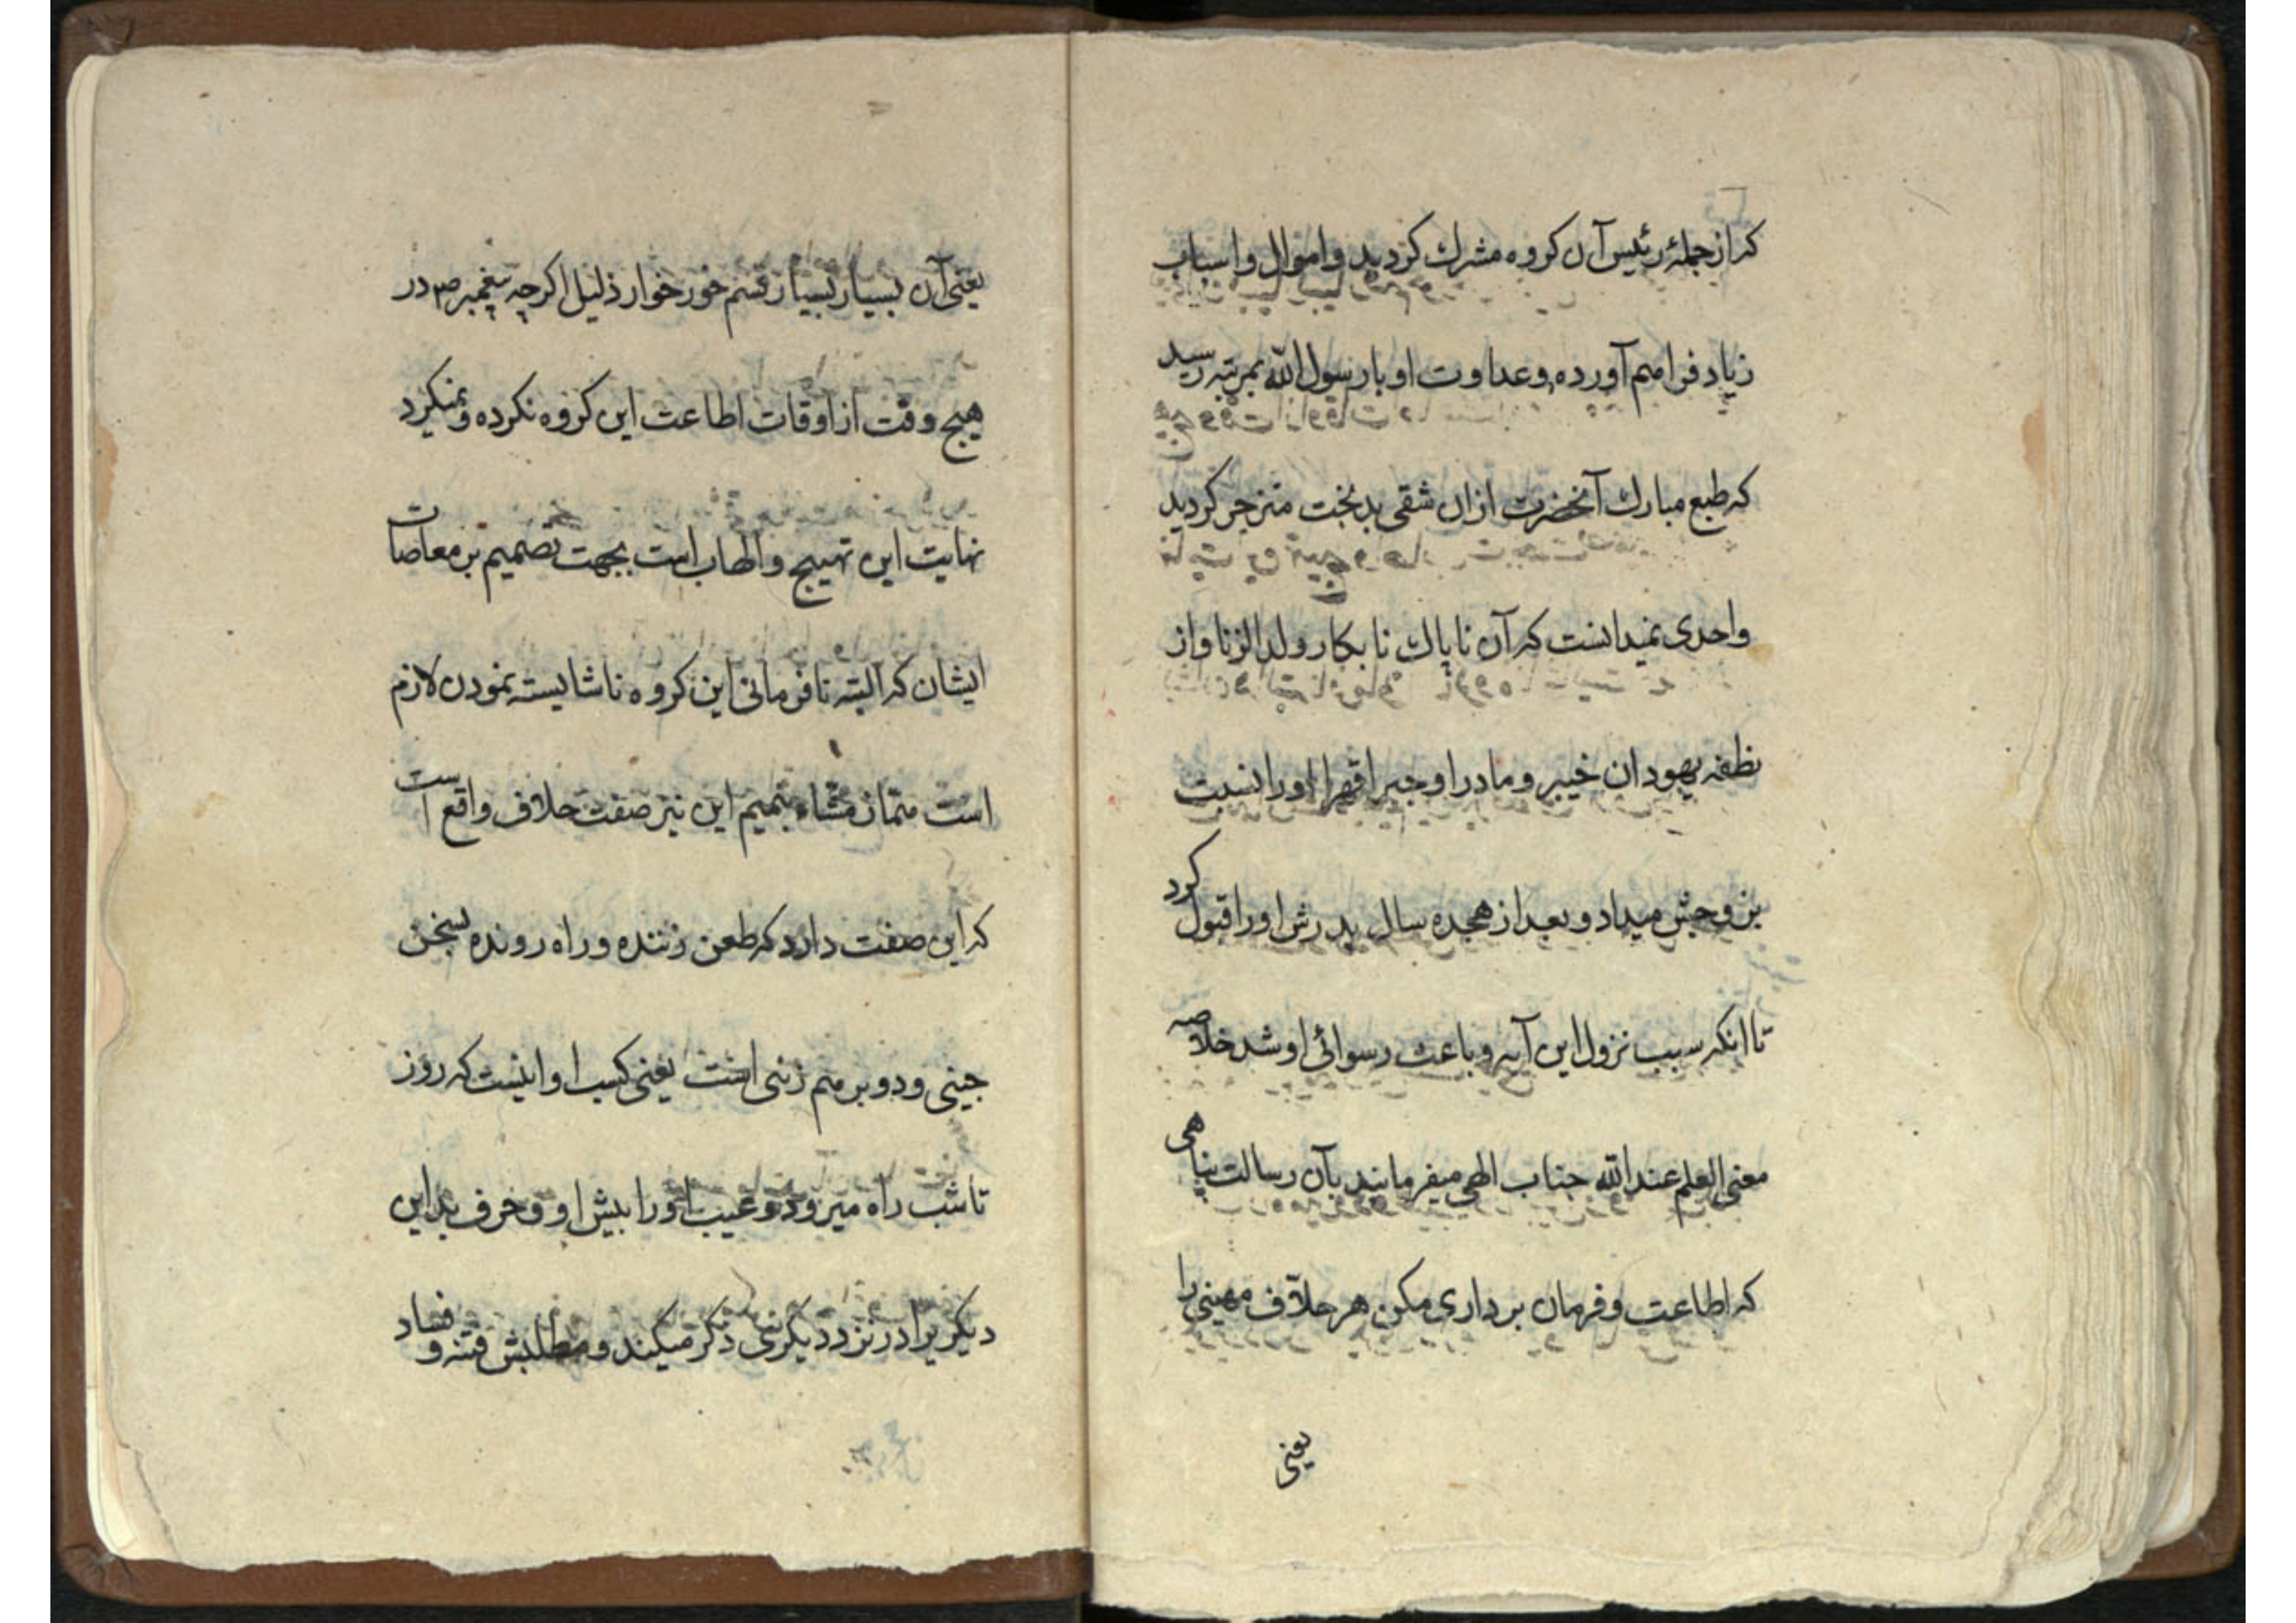 که از جملهٔ رئیس آن کروه مشرك کردید و اموال و اسباب
زیاد فراهم آورده و عداوت او با رسول اللّه بمرتبه رسید
که طبع مبارك آنحضرت ازان شقی بدبخت منزجر کردید
واحدی نمیدانست که آن ناپاك نابکار ولد الزنا و از
نطفه یهودان خیبر و مادر او جبراً قهراً او را نسبت
بزوجش میداد و بعد از هجده سال پدرش او را قبول کرد
تا انکه سبب نزول این آیه و باعث رسوائی او شد خلاصه
معنی العلم عند اللّه جناب الهی میفرمانید بآن رسالت پناهی
که اطاعت و فرمان برداری مکن هر حلّاف مهینی را
یعنی
یعنی آن بسیار بسیار قسم خور خوار ذلیل اکرچه پیغمبر ص در
هیچ وقت از اوقات اطاعت این کروه نکرده و نمیکرد
نهایت این تهییج و الهاب است بجهت تصمیم بر معاصات
ایشان که البته نافرمانی این کروه ناشایسته نمودن لازم
است همّاز مشّاء بنمیم این نیز صفت حلاف واقع است
که این صفت دارد که طعن زننده و راه رونده بسخن
چینی و دوبرهم زنی است یعنی کسب او اینست که روز
تا شب راه میرود و عیب او را پیش او و حرف بد این
دیکریرا در نزد دیکری ذکر میکند و مطلبش فتنه و فساد